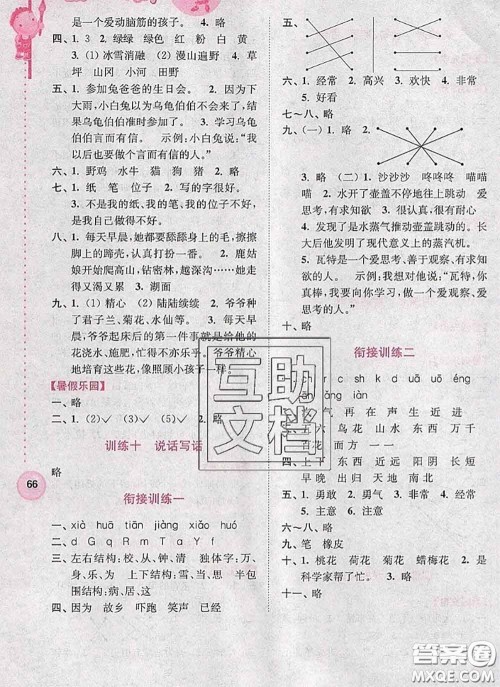 是一个爱动脑筋的孩子。
四、1. 3 2. 绿绿 绿色 红 粉 白 黄
3. (1)冰雪消融 (2)漫山遍野 4. 草
坪 山冈 小河 田野
五、1. 参加兔爸爸的生日会。 2. 因为下
大雨,小白兔以为乌龟伯伯不会来了,
结果乌龟伯伯准时参加了。 3. 学习乌龟
伯伯的言而有信。 示例:小白兔说:“我
以后也要做个言而有信的人。”
六、1. 野鸡 水牛 猫 狗 猪 2. 略
七、1. 纸 笔 位子 2. 写的字很好。
3. 不是我的纸,我的笔,我的位子好,也
是我自己做得很好。
八、1. 每天早晨,她都要舔舔身上的毛,擦擦
脚上的蹄壳,认真打扮一番。 2. 鹿姑
娘开始爬高山,钻密林,越深沟……她走
得很远很远 3. 湖面
九、1. (1)精心 (2)陆陆续续 2. 爷爷种
了君子兰、菊花、水仙等。 3. 每天早晨,
爷爷起床后的第一件事就是给他的
花浇水、施肥,忙得不亦乐乎。爷爷精心
地培育这些花,像照顾小孩子一样。
【暑假乐园】
一、略
二、1. (1)✓ (2)✓ 2. (1)✓ (3)✓
训练十 说话写话
略
衔接训练一
一、xiā huā tiān jiàng xiǎo huó
二、d G Q q R r m T t A a Y y f
三、左右结构:校、从、钟、清 独体字:万、
身、乐、为 上下结构:雪、当、思 半包
围结构:病、居、这
四、因为 故乡 吓跑 笑声 已成
66
五、
六、1. 经常 2. 高兴 3. 欢快 4. 非常
5. 好看
七~八、略
九、(一) 1. 略 2.
3. 略 (二) 1. 沙沙沙 咚咚咚 喵喵
喵 2. 水开了壶盖不停地往上跳动 爱
思考,有求知欲 3. 很认真 很有耐心
4. 发现了是水蒸气推动壶盖跳动的。长
大后他发现了现代意义上的蒸汽机。
5. 瓦特是一个爱思考、善于观察、有求知
欲的人。 示例:我想对他说:“瓦特,
你真厉害,我也要做一个爱观察、爱思
考的人。”
十、略
衔接训练二
二、
气 再 在 声 生 近 进
三、
五 六 鸟 山水 东西 万千
百花 东西 南方 一方
四、上下 东西 远近 阳阴 长短
早晚 出归 天地 南北
五、1. 勇敢 2. 勇气 3. 非常 4. 经常
5. 主意 6. 注意
六~八、略
九、笔 橡皮
十、1. 桃花 荷花 菊花 蜡梅花 2. 是
科学家帮了忙。 3. 略
十一、略
互助
文档
答案圈
MXQE.COM